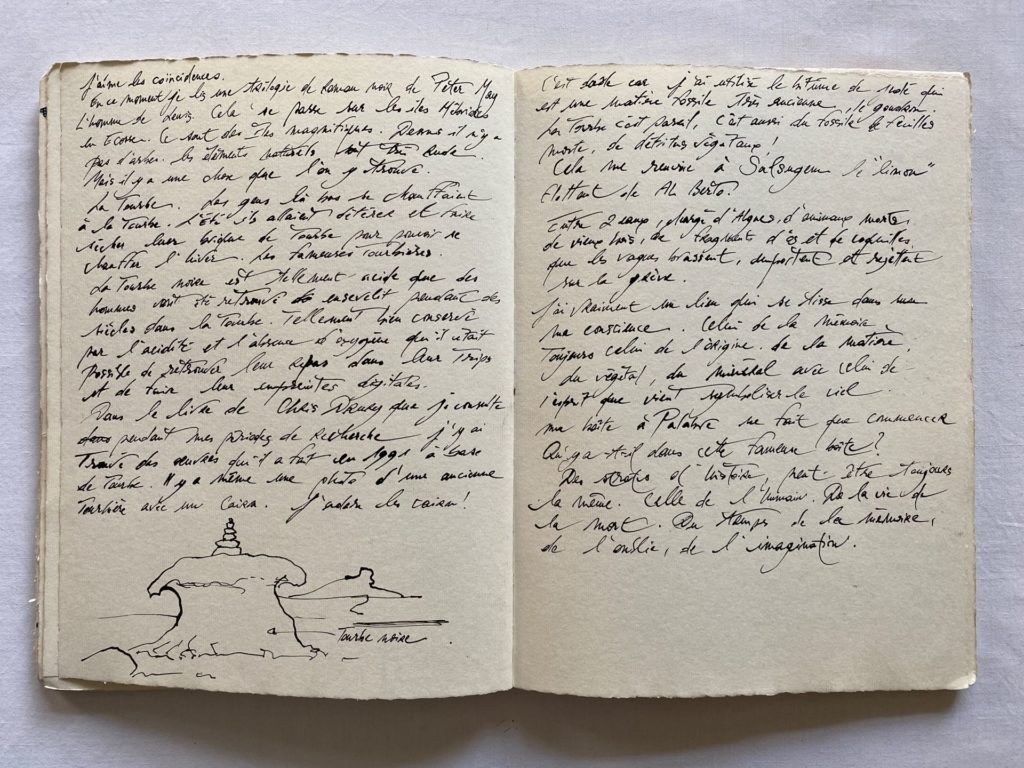 J'aime les coïncidences.
En ce moment je lis une trilogie de Roman noir de Peter May
L'homme de Lewis. Cela se passe sur les îles Hébrides
en Ecosse. Ce sont des îles magnifiques. Dessus il n'y a
pas d'arbre. les éléments naturels très rude.
Mais il y a une chose que l'on y trouve.
La Tourbe. Les gens là bas se chauffaient
à la Tourbe. L'été ils allaient déterrer et faire
sécher leur brique de Tourbe pour pouvoir se
chauffer l'hiver. Les fameuses Tourbières.
La Tourbe noire est tellement acide que des
hommes ont été retrouvé ensevelit pendant des
siècles dans la Tourbe. Tellement bien conservé
par l'acidité et l'absence d'oxygène qu'il était
possible de retrouver leur repas dans leur
et de faire leur empreintes digitales.
Dans le livre de Chris Drury que je consulte
pendant mes périodes de Recherche j'y ai
Trouvé des œuvres qu'il a fait en 1991 à base
de Tourbe. Il y a même une photo d'une ancienne
Tourbière avec un Cairn. J'adore les cairn!
Tourbe noire
C'est car j'ai utilisé le bitume de qui
est une matière fossile très ancienne, le goudron.
La Tourbe c'est pareil, c'est aussi du fossile de feuilles
morte, de détritus végétaux!
Cela me renvoie à Salsugem le "limon"
flottant de Al Berto.
Entre 2 eaux, chargé d'Algues, d'animaux morts,
de vieux bois, de fragments d'os et de coquilles
que les vagues brassent, emportent et rejettent
sur la grève.
J'ai vraiment un lien qui se tisse dans
ma conscience. Celui de la mémoire
Toujours celui de l'origine. de la matière,
du végétal, du minéral avec celui de
l'esprit que vient symboliser le ciel
ma boîte à Palabre ne fait que commencer
Qu'y a-t-il dans cette fameuse boîte?
Des strates d'histoire, peut être toujours
la même. Celle de l'humain. De la vie de
la mort. Du temps de la mémoire,
de l'oublie, de l'imagination.